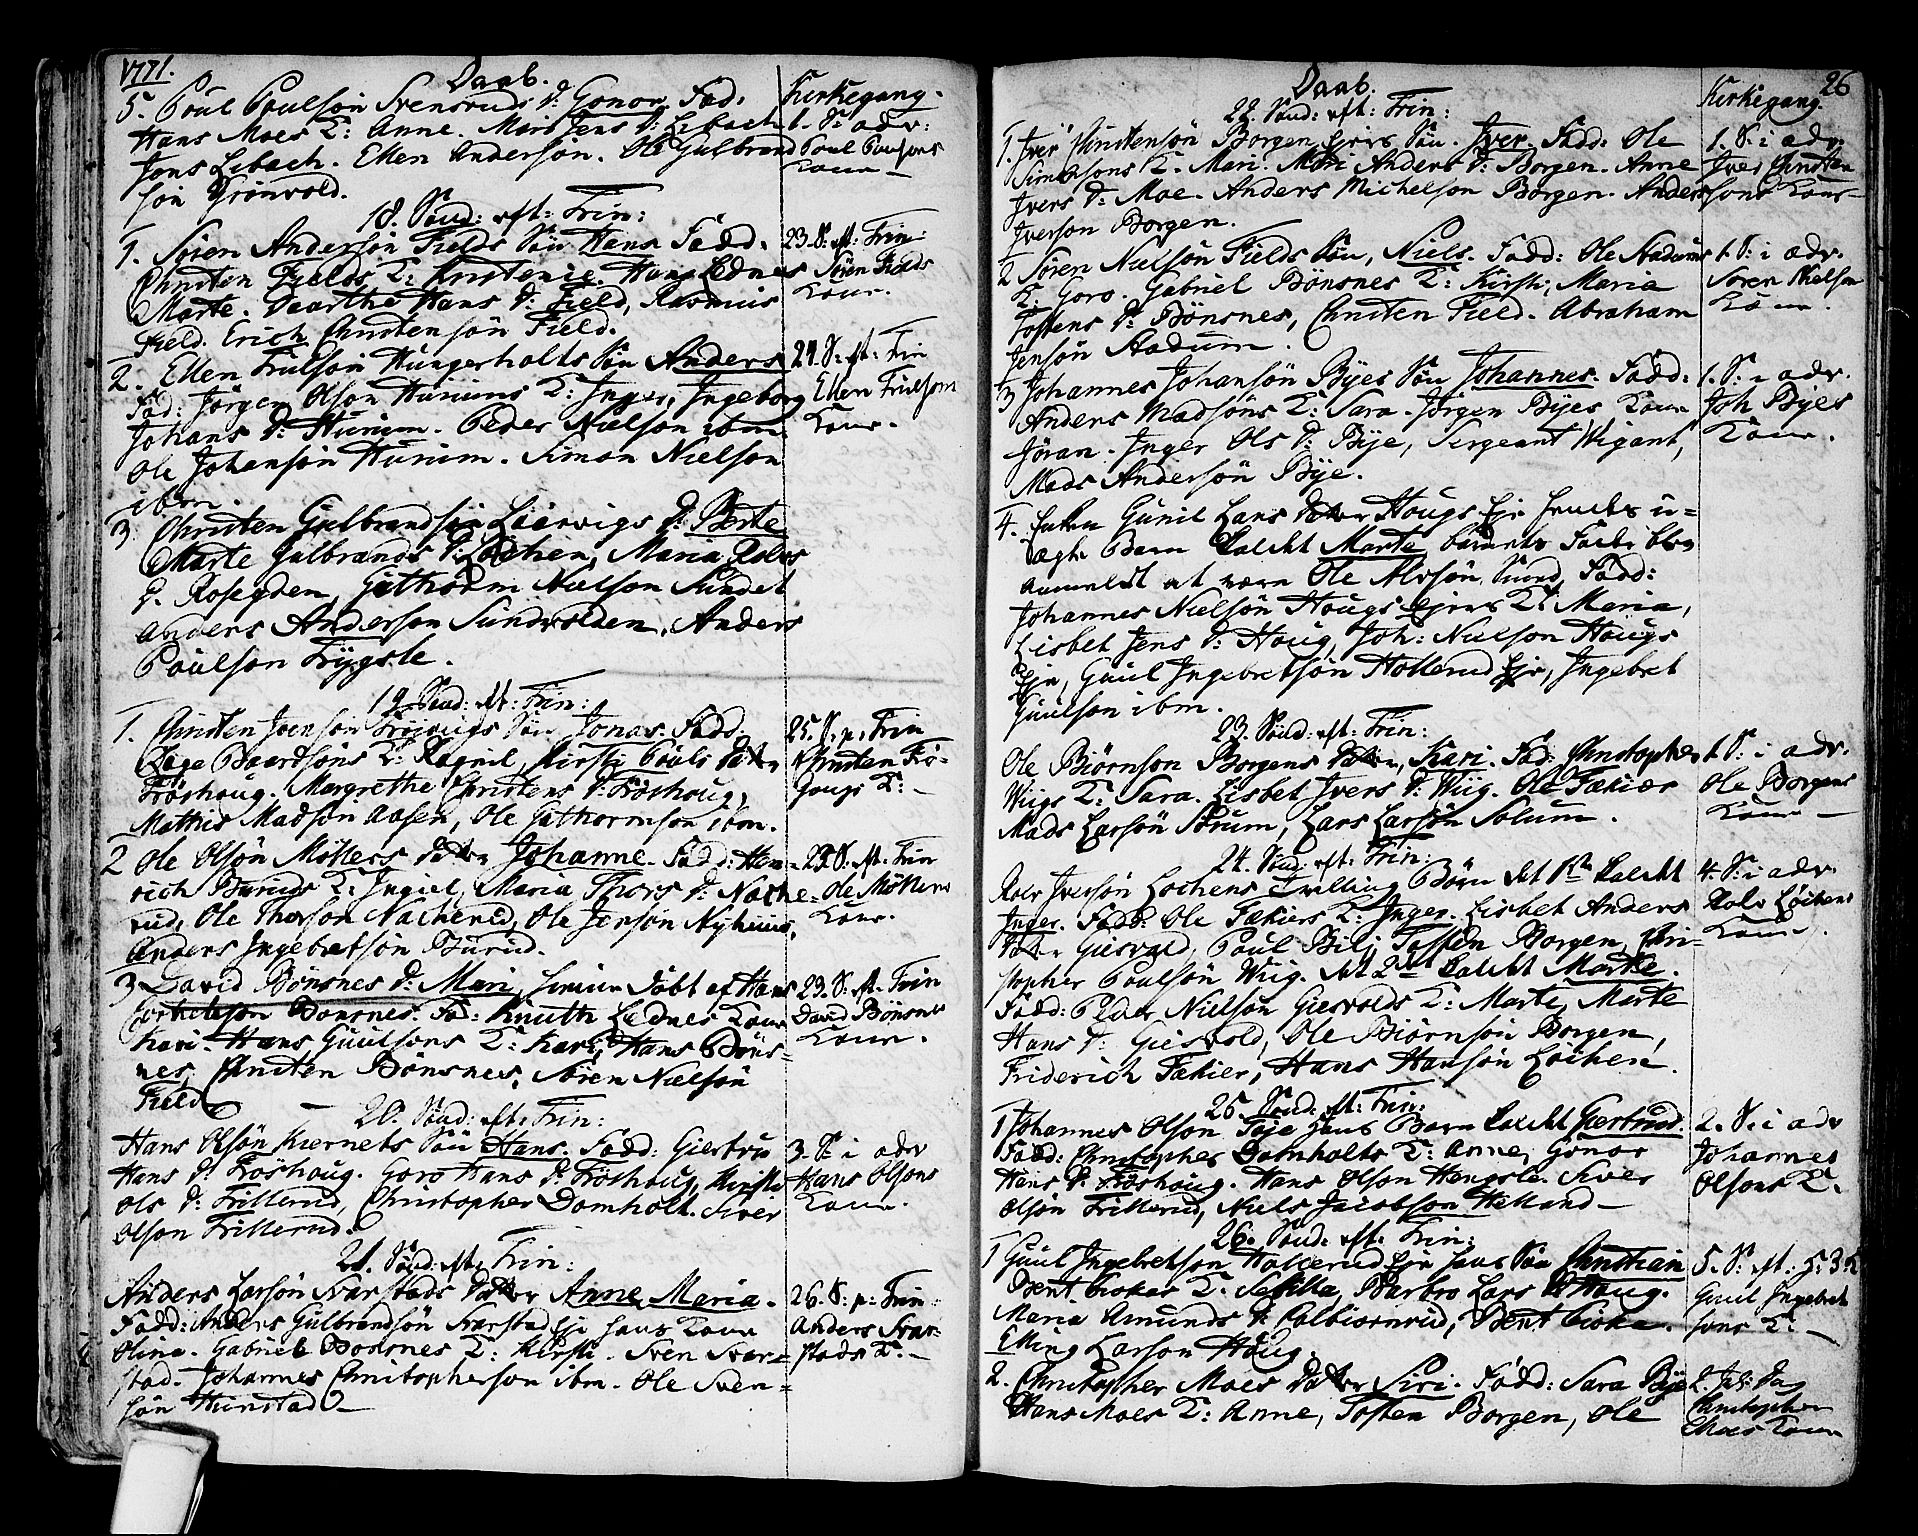 1771.
Daab.
Kirkegang.
5. Poul Poulsøn Svensruds D: Gonor. Fad:
Hans Moes K: Anne. Mari Jens D: Lebach
Jens Lebach. Ellen Andersøn. Ole Gulbrand
søn Grönvold.
1. S: i adv:
Poul Poulsøns
Kone
18. Sønd: eft: Trin:
1. Søren Andersøn Fields Søn Hans Fadd.
Christen Fields K: Kirstenie. Hans Lednes
Marte. Dorthe Hans D: Field, Rasmus
Field. Erich Christensøn Field.
23. S: eft: Trin:
Søren Fields
Kone.
2. Ellen Trulsøn Hungerholts Søn Anders
Fad: Jørgen Olsøn Hurums K: Inger, Ingeborg
Johans D: Hurum. Peder Nielsøn ibm
Ole Johansøn Hurum. Simon Nielsøn
ibm.
24. S: eft: Trin
Ellen Trulsøns
Kone.
3 Christen Gulbrandsøn Leervigs D: Berte
Marte Gulbrands D: Löchen, Maria Rolvs
D. Rosegden, Guthorm Nielsøn Sundet
Anders Andersøn Sundvolden, Anders
Poulsøn Trygsle.
19. Sønd: eft: Trin:
1. Christen Jensøn Frøhougs Søn Jonas. Fadd:
Aage Baardsøns K: Ragnil, Kirsti Pouls Datter
Frøshoug. Margrethe Christens D: Frøshoug,
Mathis Madsøn Aasen, Ole Guthormsøn ibm.
25. S. p. Trin
Christen Frø-
hougs K:
2 Ole Olsøn Møllers Datter Johanne. Fadd: Hen-
rich Buruds K: Ingiel, Maria Thors D: Nache-
rud, Ole Thorsøn Nacherud, Ole Jensøn Nyhuus,
Anders Ingebretsøn Burud.
23. S. eft: Trin
Ole Møllers
Kone.
3 David Bönsnes D: Mari, hiemme døbt af Hans
Bönsnes. Fad: Knuth Lednes Kone
Kari. Hans Guulsøns K: Kari, Hans Böns-
nes, Christen Bönsnes, Søren Nielsøn
Field
23. S. eft: Trin
David Bönsnes
Kone.
20. Sønd: eft: Trin:
Hans Olsøn Kiernets Søn Hans. Fadd: Giertru
Hans D: Frøshoug. Goro Hans D: Frøshoug, Kirsti
Ols D: Frillerud, Christopher Domholt. Siver
Olsøn Frillerud.
3. S: i adv
Hans Olsøns
Kone.
21. Sønd: eft: Trin:
Anders Larsøn Svarstads Datter Anne Maria.
Fadd: Anders Gulbrandsøn Svarstad Eje hans Kone
Olina. Gabriel Bonsnes K: Kirsti. Sven Svar-
stad. Johannes Christophersøn ibm. Ole Sven-
søn Hunstad
26. S: p: Trin:
Anders Svar-
stads K.
26
Daab.
Kirkegang.
22. Sønd: eft: Trin:
1. Iver Christensøn Borgen Ejes Søn. Iver. Fadd: Ole
Simensøns K. Mari. Mari Anders D: Borgen. Anne
Ivers D: Moe. Anders Michelsøn Borgen. Anders
Iversøn Borgen.
1. S. i adv.
Iver Christen
søns Kone
2 Søren Nielsøn Fields Søn, Niels. Fadd: Ole Stadums
K. Goro. Gabriel Bönsnes K: Kirsti, Maria
Tostens D: Bönsnes, Christen Field. Abraham
Jensøn Stadum.
1. S: i adv.
Søren Nielsøn
Kone.
3 Johannes Johansøn Byes Søn Johannes. Fadd:
Anders Madsøns K: Sara. Jørgen Byes Kone
Jøran. Inger Ols D: Bye, Sergeant Wigant,
Mads Andersøn Bye.
1. S: i adv.
Joh Byes
Kone.
4. Enken Gunil Lars Datter Hougs Eje hendes u-
ægte Barn kaldet Marte barnets Fader blev
anmeldt at være Ole Alvsøn Fadd:
Johannes Nielsøn Hougs Ejes K: Maria,
Lisbet Jens D: Houg, Joh: Nielsøn Hougs
Eje, Guul Ingebretsøn Hollerud Eje, Ingebret
Guulsøn ibm.
23. Sønd: eft: Trin:
Ole Biørnsøn Borgens Datter, Kari. Fad: Christopher
Wiigs K: Sara. Lisbet Ivers D: Wiig. Ole Fækier
Mads Larsøn Sørum, Lars Larsøn Solum.
1. S: i adv.
Ole Borgens
Kone
24. Sønd: eft: Trin:
Rolv Iversøn Lochens Tvilling Børn det 1ste kaldet
Inger. Fadd: Ole Fækiers K: Inger. Lisbet Anders
Datter Giesvold, Paul Bili, Tosten Borgen, Chri-
stopher Poulsøn Wiig. det 2det kaldet Marte.
Fadd: Peder Nielsøn Giesvolds K: Marte, Marte
Hans D: Giesvold, Ole Biørnsøn Borgen,
Friderich Fækier, Hans Hansøn Lochen.
4. S: i adv.
Rolv Løchens
Kone.
25. Sønd: eft: Trin:
1 Johannes Olsøn Eje hans Barn kaldet Giertrud.
Fadd: Christopher Domholts K: Anne, Gonor
Hans D: Frøshoug. Hans Olsøn Hengsle. Siver
Olsøn Frillerud, Niels Jacobsøn Helland
2. S. i adv
Johannes
Olsøns K.
26. Sønd: eft: Trin:
1 Guul Ingebretsøn Hollerud Eje hans Søn Christian
Bent Piskes K. Sehlla, Barbro Lars D: Houg.
Maria Amunds D: Colbiørnrud, Bent Piske.
Elling Larsøn Houg.
5. S: eft: H: 3: K
Guul Ingebret
søns K:
2. Christopher Moes Datter Siri. Fadd: Sara Bye
Hans Moes K: Anne, Tosten Borgen, Ole
2. Jul: Dag
Christopher
Moes Kone